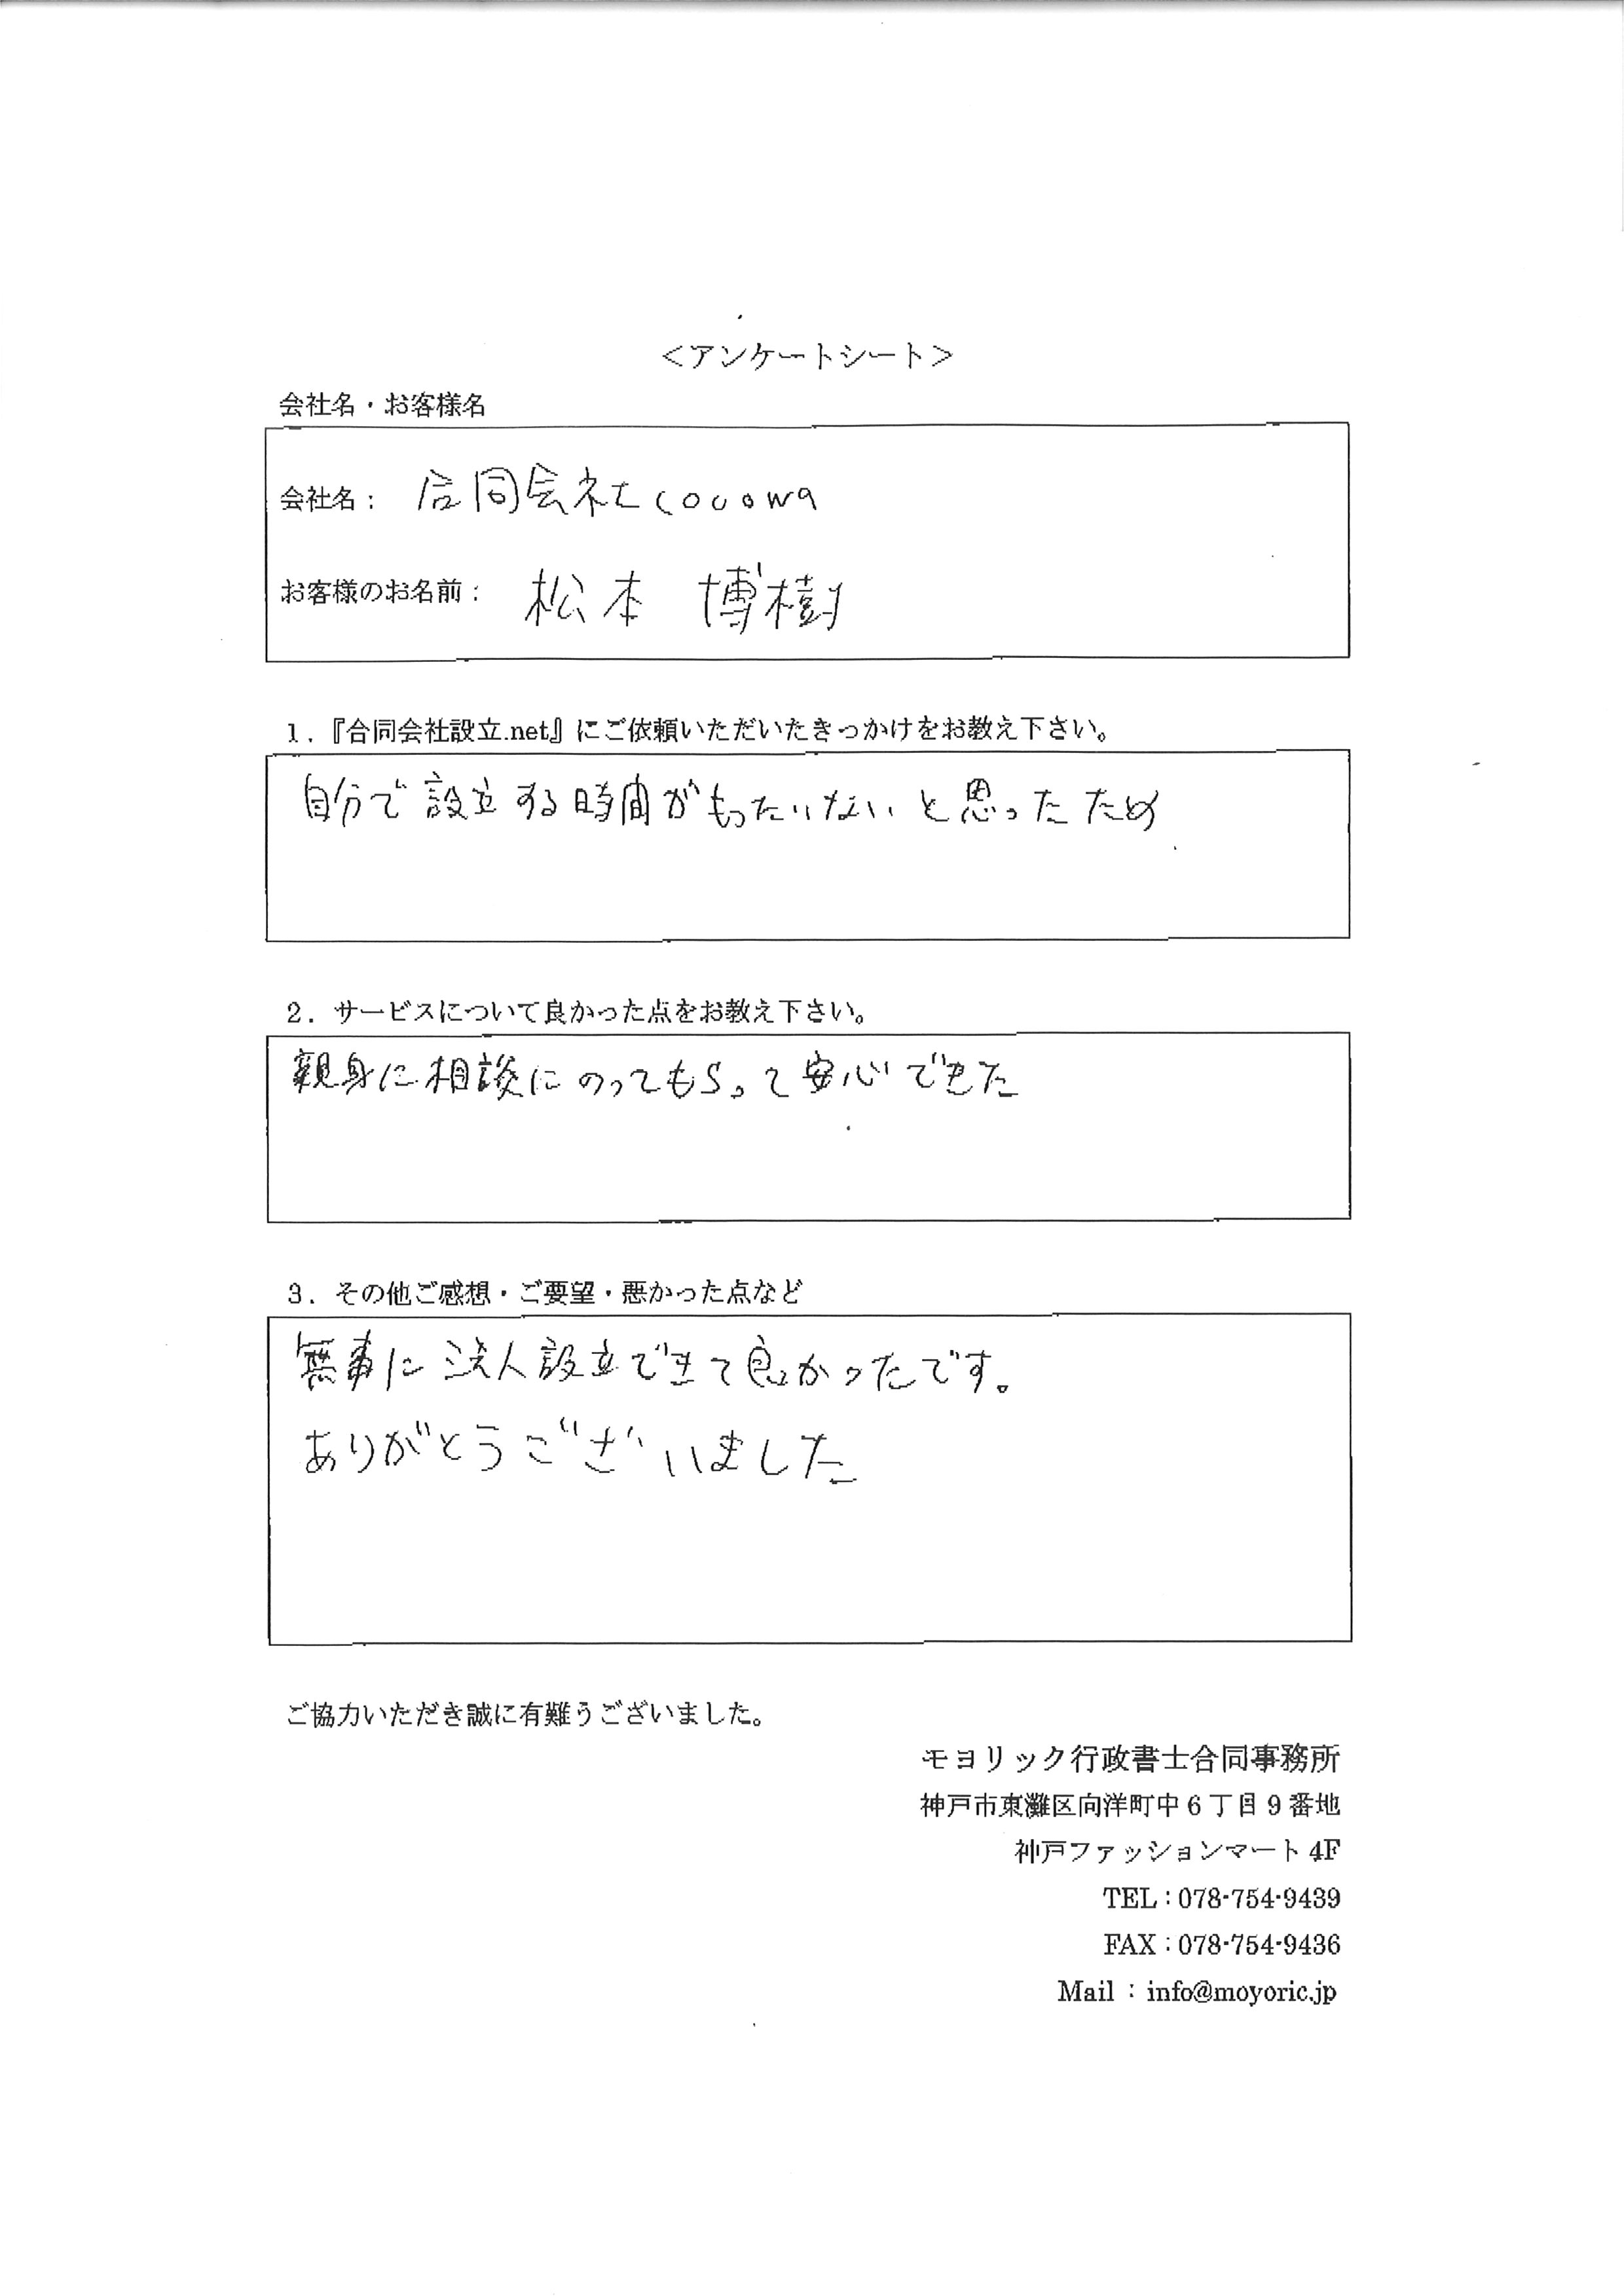 ＜アンケートシート＞
会社名・お客様名
会社名： 合同会社cocowa
お客様のお名前： 松本 博樹
1．『合同会社設立.net』にご依頼いただいたきっかけをお教え下さい。
自分で設立する時間がもったいないと思ったため
2．サービスについて良かった点をお教え下さい。
親身に相談にのってもらって安心できた
3．その他ご感想・ご要望・悪かった点など
無事に法人設立できて良かったです。
ありがとうございました
ご協力いただき誠に有難うございました。
モヨリック行政書士合同事務所
神戸市東灘区向洋町中６丁目９番地
神戸ファッションマート 4F
TEL：078-754-9439
FAX：078-754-9436
Mail：info@moyoric.jp